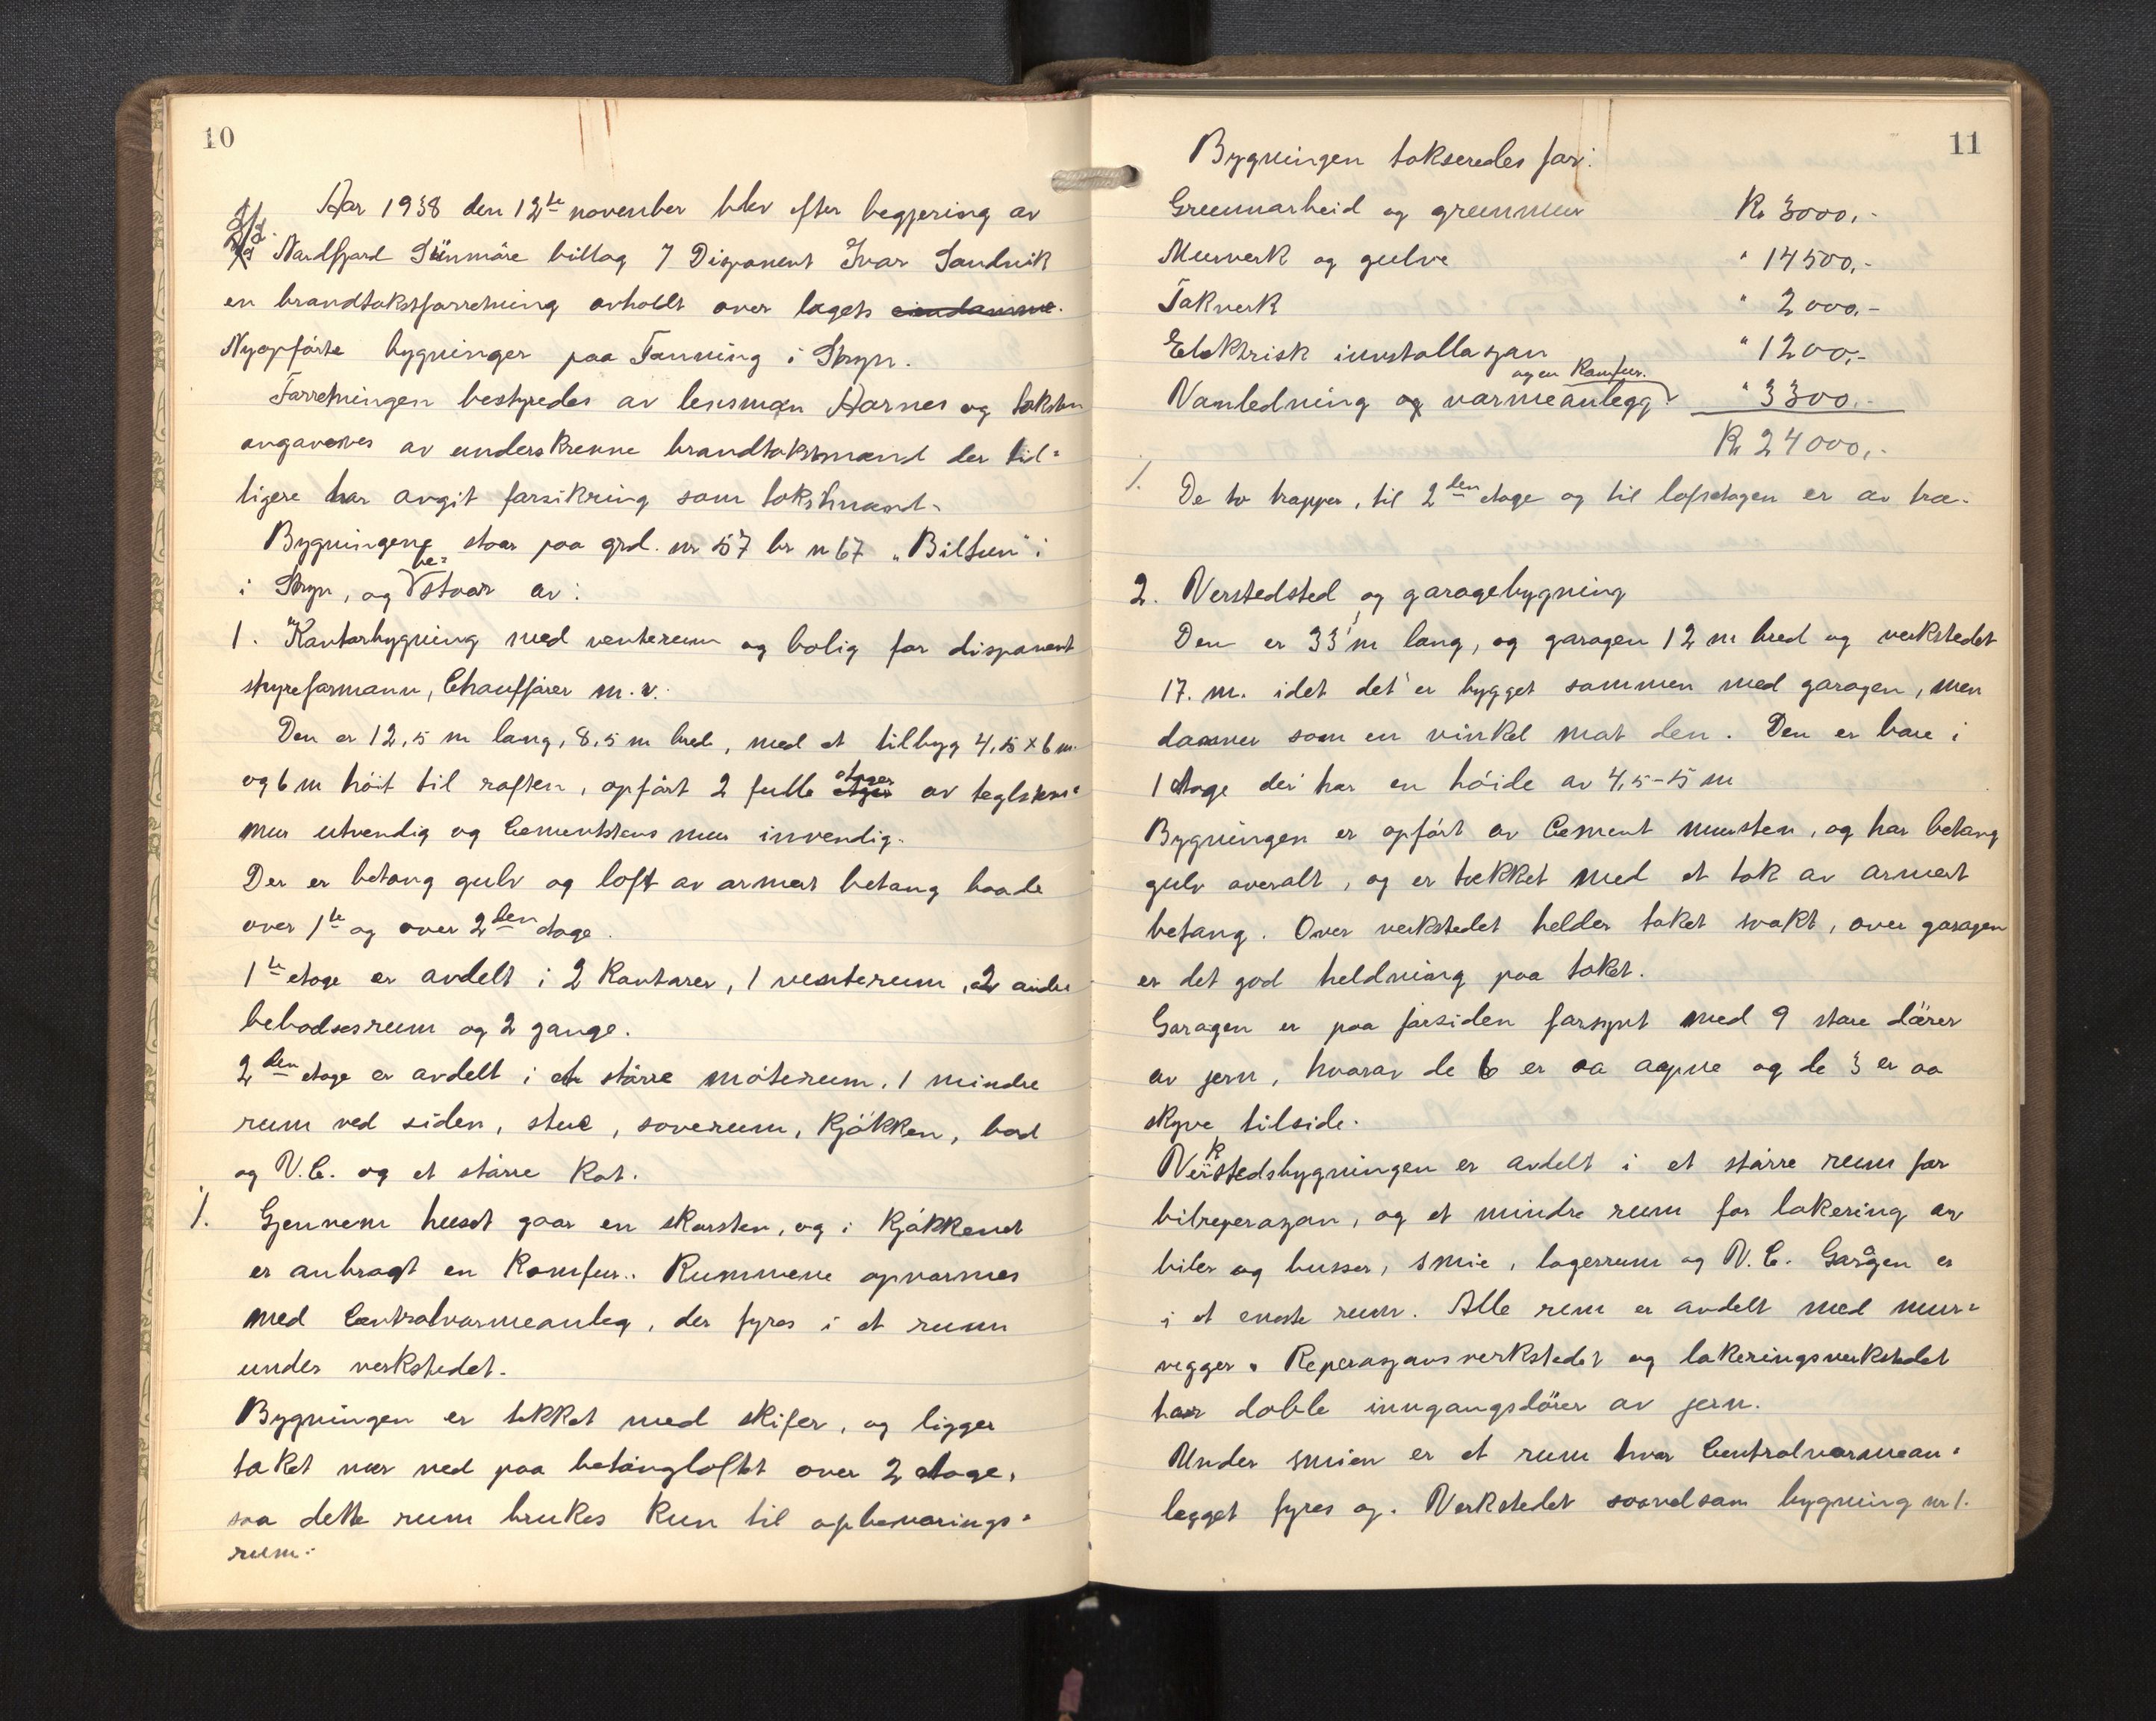 10
Aar 1938 den 12te november blev efter begjering av
A/S Nordfjord Sunmöre billag v/ Disponent Ivar Sandvik
en brandtakstforretning avholdt over lagets eiendomme.
Nyopförte bygninger paa Tonning i Stryn.
Forretningen bestyredes av lensman Aarnes og taksten
avgaves av underskrevne brandtakstmænd der tid=
ligere har avgit forsikring som takstmænd.
Bygningene staar paa grd. nr 57 br n 67 „Biltun" i
i Stryn, og be=staar av:
1. Kontorbygning med venterum og bolig for disponent
styreformann, Chauffører m.v.
Den er 12,5 m lang, 8,5 m bred, med et tilbyg 4,5 x 6 m.
og 6 m höit til raften, opfört 2 fulle etager av teglsten=
mur utvendig og Cementstens mur invendig.
Der er betong gulv og loft av armert betong baade
over 1te og over 2den etage.
1te etage er avdelt i 2 Kontorer, 1 venterum, 2 andre
bekvemsrum og 2 gange.
2den etage er avdelt i et större möterum, 1 mindre
rum ved siden, stue, soverum, Kjökken, bad
og V.C. og et större Kot.
1. Gjennem huset gaar en skorsten, og i Kjökkenet
er anbragt en Komfur. Rummene opvarmes
med Centralvarmeanleg, der fyres i et rum
under verkstedet.
Bygningen er tekket med skifer, og ligger
taket nær ned paa betongloftet over 2 etage,
saa dette rum brukes Kun til opbevarings=
rum.
11
Bygningen takseredes for:
Grunnarbeid og grunnmur Kr 3000,-
Murverk og gulve " 14500,-
Takverk " 2000,-
Elektrisk innstallasjon " 1200,-
og en Komfur.
Vanledning og varmeanlegg " 3300.-
Kr 24000,-
1. De to trapper, til 2den etage og til loftsetagen er av træ.
2. Verstedsted og garagebygning
Den er 33 m lang, og garagen 12 m bred og verkstedet
17. m. idet det er bygget sammen med garagen, men
danner som en vinkel mot den. Den er bare i
1 etage der har en höide av 4,5-5 m
Bygningen er opfört av Cement mursten, og har betong
gulv overalt, og er tækket med et tak av armert
betong. Over verkstedet helder taket svakt, over garagen
er det god heldning paa taket.
Garagen er paa forsiden forsynt med 9 store dörer
av jern, hvorav de 6 er aa aapne og de 3 er aa
skyve tilside.
Verkstedsbygningen er avdelt i et större rum for
bilreperasjon, og et mindre rum for lakering av
biler og busser, smie, lagerrum og V.C. Garagen er
i et eneste rum. Alle rum er avdelt med mur=
vegger. Reperasjonsverkstedet og lakeringsverkstedet
har doble inngangsdörer av jern.
Under smien er et rum hvor Centralvarmean=
legget fyres og. Verkstedet saavelsom bygning nr 1.